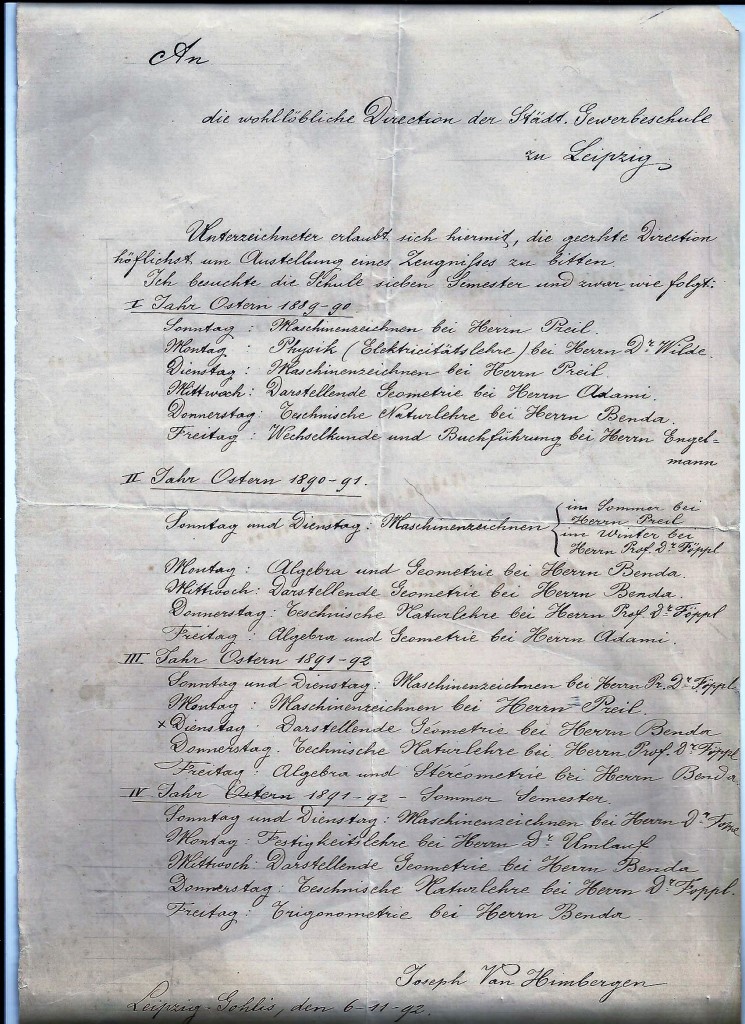 An
die wohllöbliche Direction der Städt. Gewerbeschule
zu Leipzig.
Unterzeichneter erlaubt sich hiermit, die geerhte Direction
höflichst um Austellung eines Zeugnißes zu bitten.
Ich besuchte die Schule sieben Semester und zwar wie folgt:
I Jahr Ostern 1889-90
Sonntag : Maschinenzeichnen bei Herrn Preil.
Montag : Physik (Elektricitätslehre) bei Herrn Dr. Wilde.
Dienstag : Maschinenzeichnen bei Herrn Preil.
Mittwoch: Darstellende Geometrie bei Herrn Adami.
Donnerstag: Teschnische Naturlehre bei Herrn Benda.
Freitag : Wechselkunde und Buchführung bei Herrn Engel=
mann
II Jahr Ostern 1890-91.
Sonntag und Dienstag: Maschinenzeichnen { im Sommer bei
Herrn Preil
im Winter bei
Herrn Prof. Dr. Föppl
Montag: Algebra und Geometrie bei Herrn Benda.
Mittwoch: Darstellende Geometrie bei Herrn Benda.
Donnerstag: Teschnische Naturlehre bei Herrn Prof. Dr. Föppl
Freitag: Algebra und Geometrie bei Herrn Adami.
III Jahr Ostern 1891-92
Sonntag und Dienstag: Maschinenzeichnen bei Herrn Pr. Dr. Föppl
Montag: Maschinenzeichnen bei Herrn Preil.
× Dienstag: Darstellende Geometrie bei Herrn Benda
Donnerstag: Technische Naturlehre bei Herrn Prof. Dr. Föppl
Freitag: Algebra und Stereometrie bei Herrn Benda.
IV Jahr Ostern 1891-92 - Sommer Semester.
Sonntag und Dienstag: Maschinenzeichnen bei Herrn Dr.
Montag: Festigkeitslehre bei Herrn Dr. Umlauf
Mittwoch: Darstellende Geometrie bei Herrn Benda
Donnerstag: Teschnische Naturlehre bei Herrn Dr. Föppl.
Freitag: Trigonometrie bei Herrn Benda.
Joseph Van Himbergen
Leipzig-Gohlis, den 6-11-92.